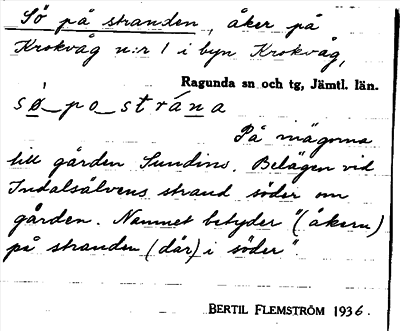 Sö på stranden, åker på
Krokvåg n:r 1 i byn Krokvåg,
Ragunda sn och tg, Jämtl. län.
sø̀ po strána
På mägorna
till gården Sundins. Belägen vid
Indalsälvens strand söder om
gården. Namnet betyder "(åkern)
på stranden (där) i söder".
BERTIL FLEMSTRÖM 1936.